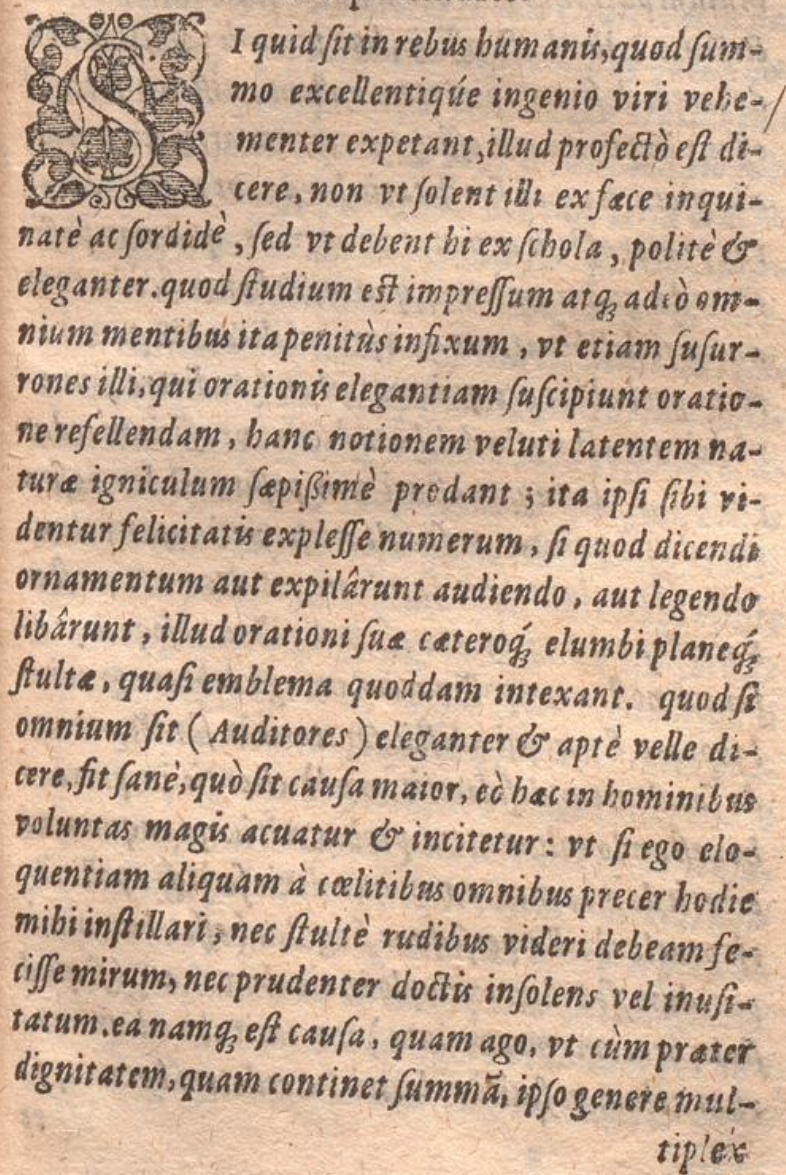 SI quid ſit in rebus humanis, quod ſum-
mo excellentiqúe ingenio viri vehe-
menter expetant, illud profectò eſt di-
cere, non vt ſolent illi ex fæce inqui-
natè ac ſordidè, ſed vt debent hi ex ſchola, politè &
eleganter. quod ſtudium eſt impreſſum atq; adeò om-
nium mentibus ita penitùs infixum, vt etiam ſuſur-
rones illi, qui orationis elegantiam ſuſcipiunt oratio-
ne refellendam, hanc notionem veluti latentem na-
turæ igniculum ſæpißimè prodant; ita ipſi ſibi vi-
dentur felicitatis expleſſe numerum, ſi quod dicendi
ornamentum aut expilârunt audiendo, aut legendo
libârunt, illud orationi ſuæ cæteroq́; elumbi planeq́;
ſtultæ, quaſi emblema quoddam intexant. quod ſi
omnium ſit (Auditores) eleganter & aptè velle di-
cere, fit ſanè, quò ſit cauſa maior, eò hæc in hominibus
voluntas magis acuatur & incitetur: vt ſi ego elo-
quentiam aliquam à cœlitibus omnibus precer hodie
mihi inſtillari, nec ſtultè rudibus videri debeam fe-
ciſſe mirum, nec prudenter doctis inſolens vel inuſi-
tatum. ea namq; eſt cauſa, quam ago, vt cùm præter
dignitatem, quam continet ſummā, ipſo genere mul-
tiplex